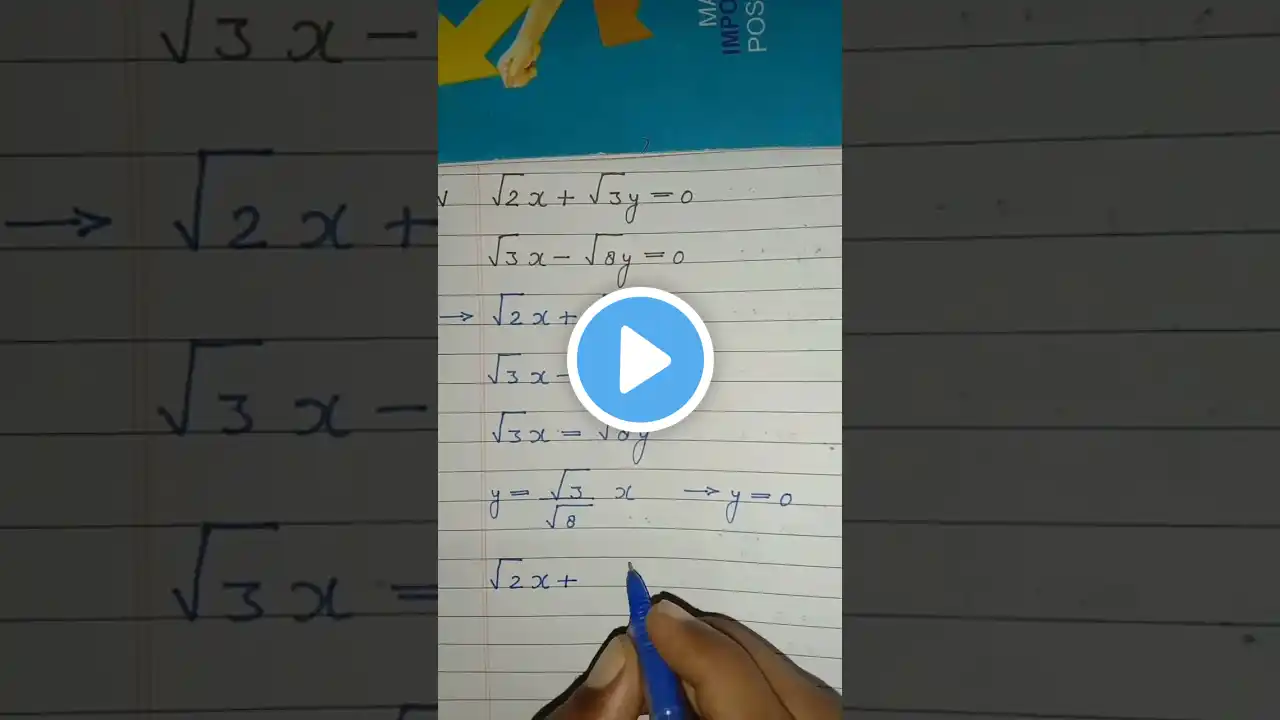 MA
IMPO
POS
√2x + √3y = 0
√3x - √8y = 0
→ √2x +
√3x -
√3x = √8y
y = √3/√8 x → y = 0
√2x +
√3x -
→ √2x +
√3x -
√3x =